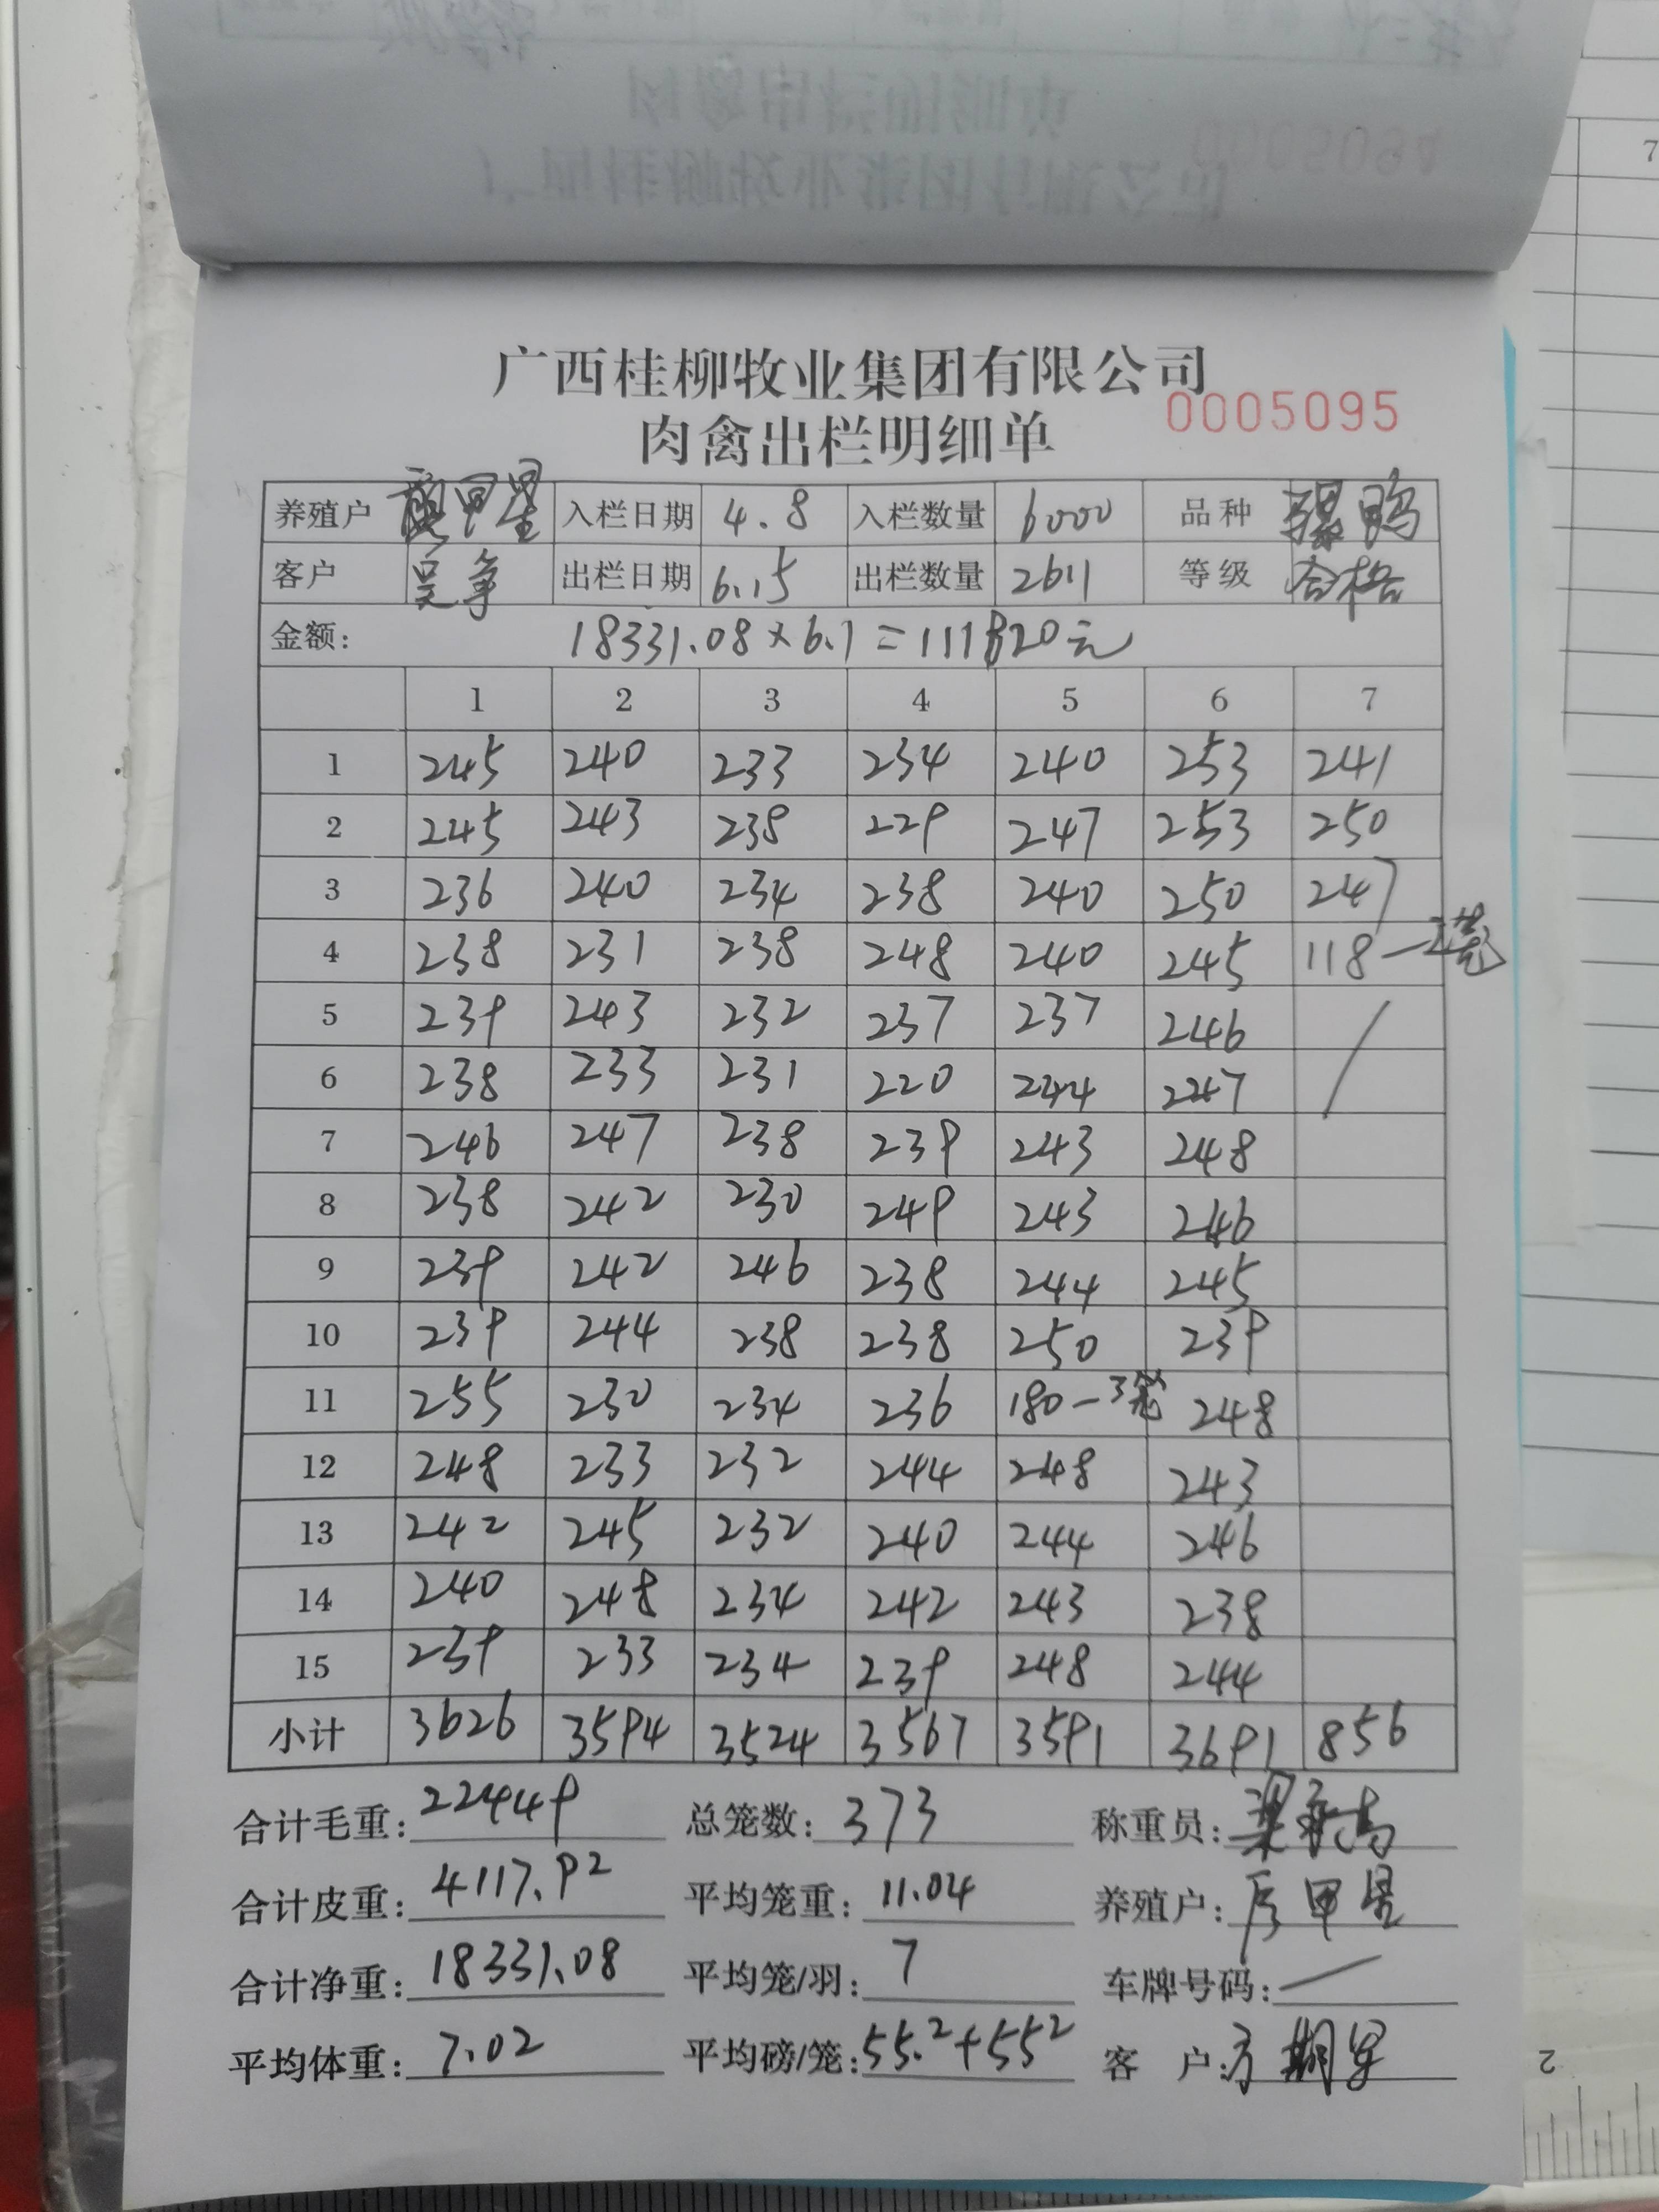 广西桂柳牧业集团有限公司
0005095
肉禽出栏明细单
养殖户 甲星 入栏日期 4.8 入栏数量 6000 品种 骡鸭
客户 吴争 出栏日期 6.15 出栏数量 2611 等级 合格
金额: 18331.08×6.1=111820元
1 2 3 4 5 6 7
1 245 240 233 234 240 253 241
2 245 243 238 229 247 253 250
3 236 240 234 238 240 250 247
4 238 231 238 248 240 245 118-2笼
5 239 243 232 237 237 246
6 238 233 231 220 244 247
7 246 247 238 239 243 248
8 238 242 230 249 243 246
9 239 242 246 238 244 245
10 239 244 238 238 250 239
11 255 230 234 236 180-3笼 248
12 248 233 232 244 248 243
13 242 245 232 240 244 246
14 240 248 234 242 243 238
15 239 233 234 239 248 244
小计 3626 3594 3524 3567 3591 3691 856
合计毛重: 22449 总笼数: 373 称重员:
合计皮重: 4117.92 平均笼重: 11.04 养殖户: 甲星
合计净重: 18331.08 平均笼/羽: 7 车牌号码:
平均体重: 7.02 平均磅/笼: 55.2+552 客 户:
2
7